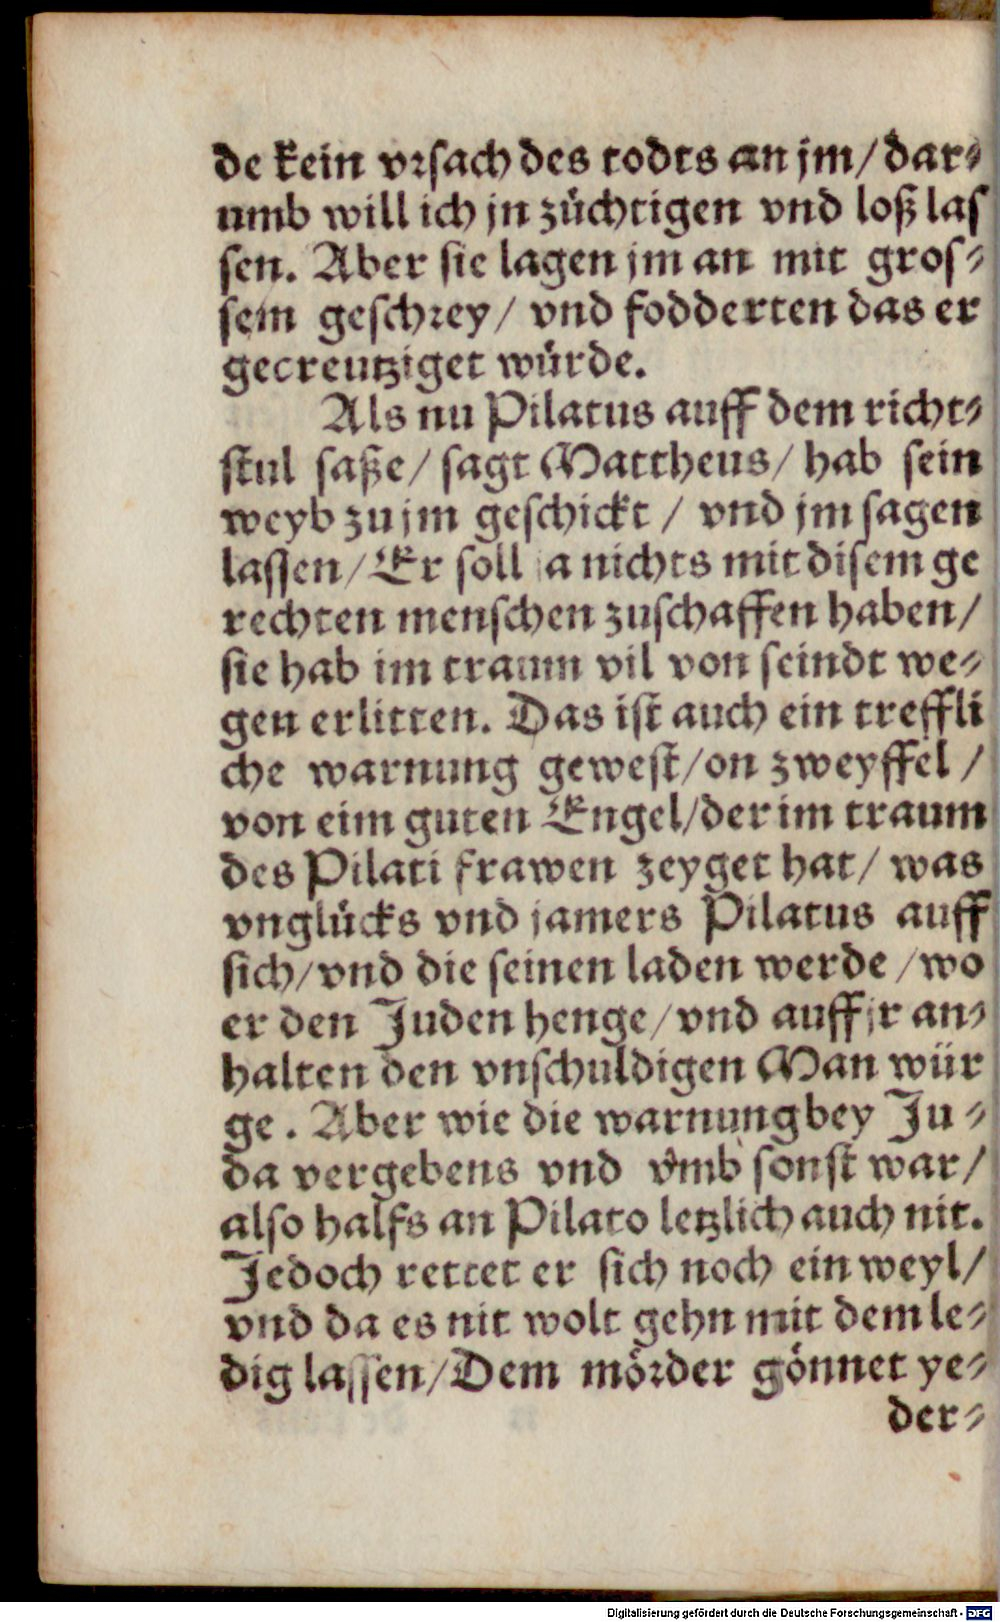 de kein vrsach des todts an jm/ dar-
umb will ich jn züchtigen vnd loß las
sen. Aber sie lagen jm an mit gros-
sem geschrey/ vnd fodderten das er
gecreutziget würde.
Als nu Pilatus auff dem richt-
stul saße/ sagt Mattheus/ hab sein
weyb zu jm geschickt / vnd jm sagen
lassen/ Er soll ja nichts mit disem ge
rechten menschen zuschaffen haben/
sie hab im traum vil von seindt we-
gen erlitten. Das ist auch ein treffli
che warnung gewest/ on zweyffel /
von eim guten Engel/ der im traum
des Pilati frawen zeyget hat/ was
vnglücks vnd jamers Pilatus auff
sich/ vnd die seinen laden werde / wo
er den Juden henge/ vnd auff jr an-
halten den vnschuldigen Man wür
ge. Aber wie die warnung bey Ju-
da vergebens vnd vmb sonst war/
also halfs an Pilato letzlich auch nit.
Jedoch rettet er sich noch ein weyl/
vnd da es nit wolt gehn mit dem le-
dig lassen/ Dem mörder gönnet ye-
der-
Digitalisierung gefördert durch die Deutsche Forschungsgemeinschaft - DFG